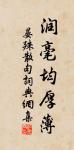 润毫均厚薄
晏殊散句词典网集